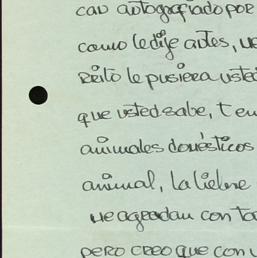 can autografiado por
como le dije antes, ue
Reito le pusiera usted
que usted sabe, ten
animales domésticos
animal, la liebre
ue agradan con ta
pero creo que con u